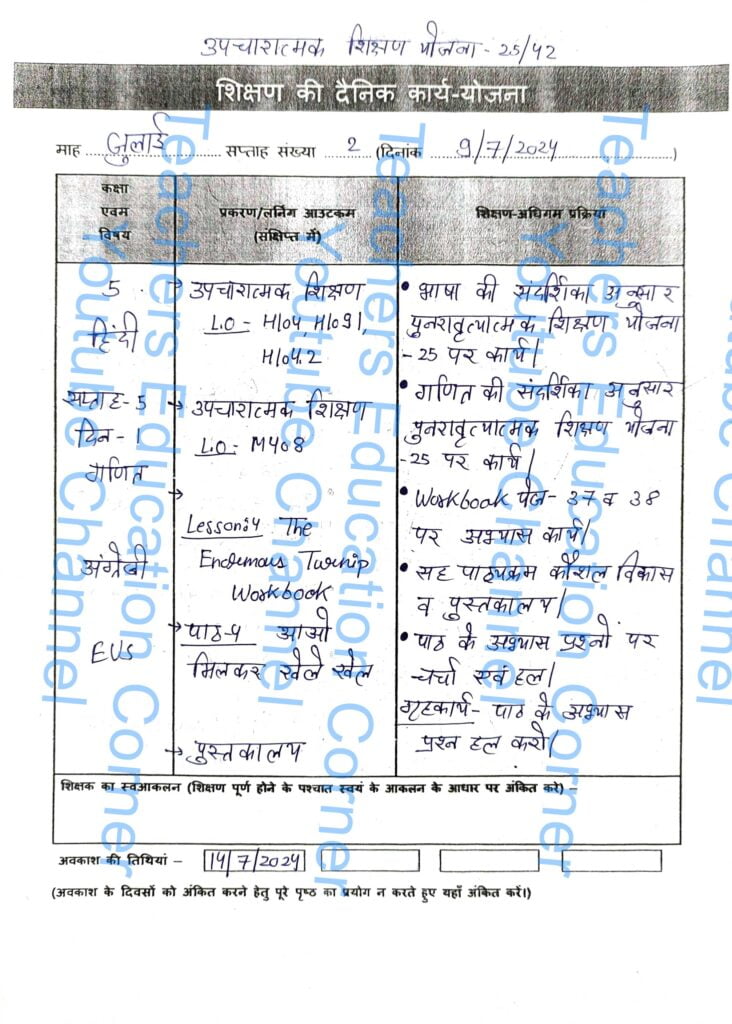 उपचारात्मक शिक्षण योजना - 25/42
शिक्षण की दैनिक कार्य-योजना
माह जुलाई सप्ताह संख्या 2 (दिनांक 9/7/2024)
कक्षा
एवम
विषय
प्रकरण/लर्निंग आउटकम
(संक्षिप्त में)
शिक्षण-अधिगम प्रक्रिया
5
हिंदी
→ उपचारात्मक शिक्षण
L.O - H104, H1091,
H104.2
• भाषा की संदर्शिका अनुसार
पुनरावृत्यात्मक शिक्षण योजना
-25 पर कार्य|
सप्ताह-5
दिन-1
गणित
→ उपचारात्मक शिक्षण
L.O- M408
• गणित की संदर्शिका अनुसार
पुनरावृत्यात्मक शिक्षण योजना
-25 पर कार्य|
अंग्रेजी
→
Lesson:4 The
Workbook
• Workbook पेज- 37 व 38
पर अभ्यास कार्य|
• सह पाठ्यक्रम कौशल विकास
व पुस्तकालय|
EVS
→ पाठ-4 आओ
मिलकर खेले खेल
• पाठ के अभ्यास प्रश्नों पर
चर्चा एवं हल|
गृहकार्य- पाठ के अभ्यास
प्रश्न हल करो|
→ पुस्तकालय
शिक्षक का स्वआकलन (शिक्षण पूर्ण होने के पश्चात स्वयं के आकलन के आधार पर अंकित करे) -
अवकाश की तिथियां - 14/7/2024
(अवकाश के दिवसों को अंकित करने हेतु पूरे पृष्ठ का प्रयोग न करते हुए यहाँ अंकित करें।)
Teachers Education Corner
Youtube Channel
Teachers Education Corner
Youtube Channel
Teachers Education Corner
Youtube Channel